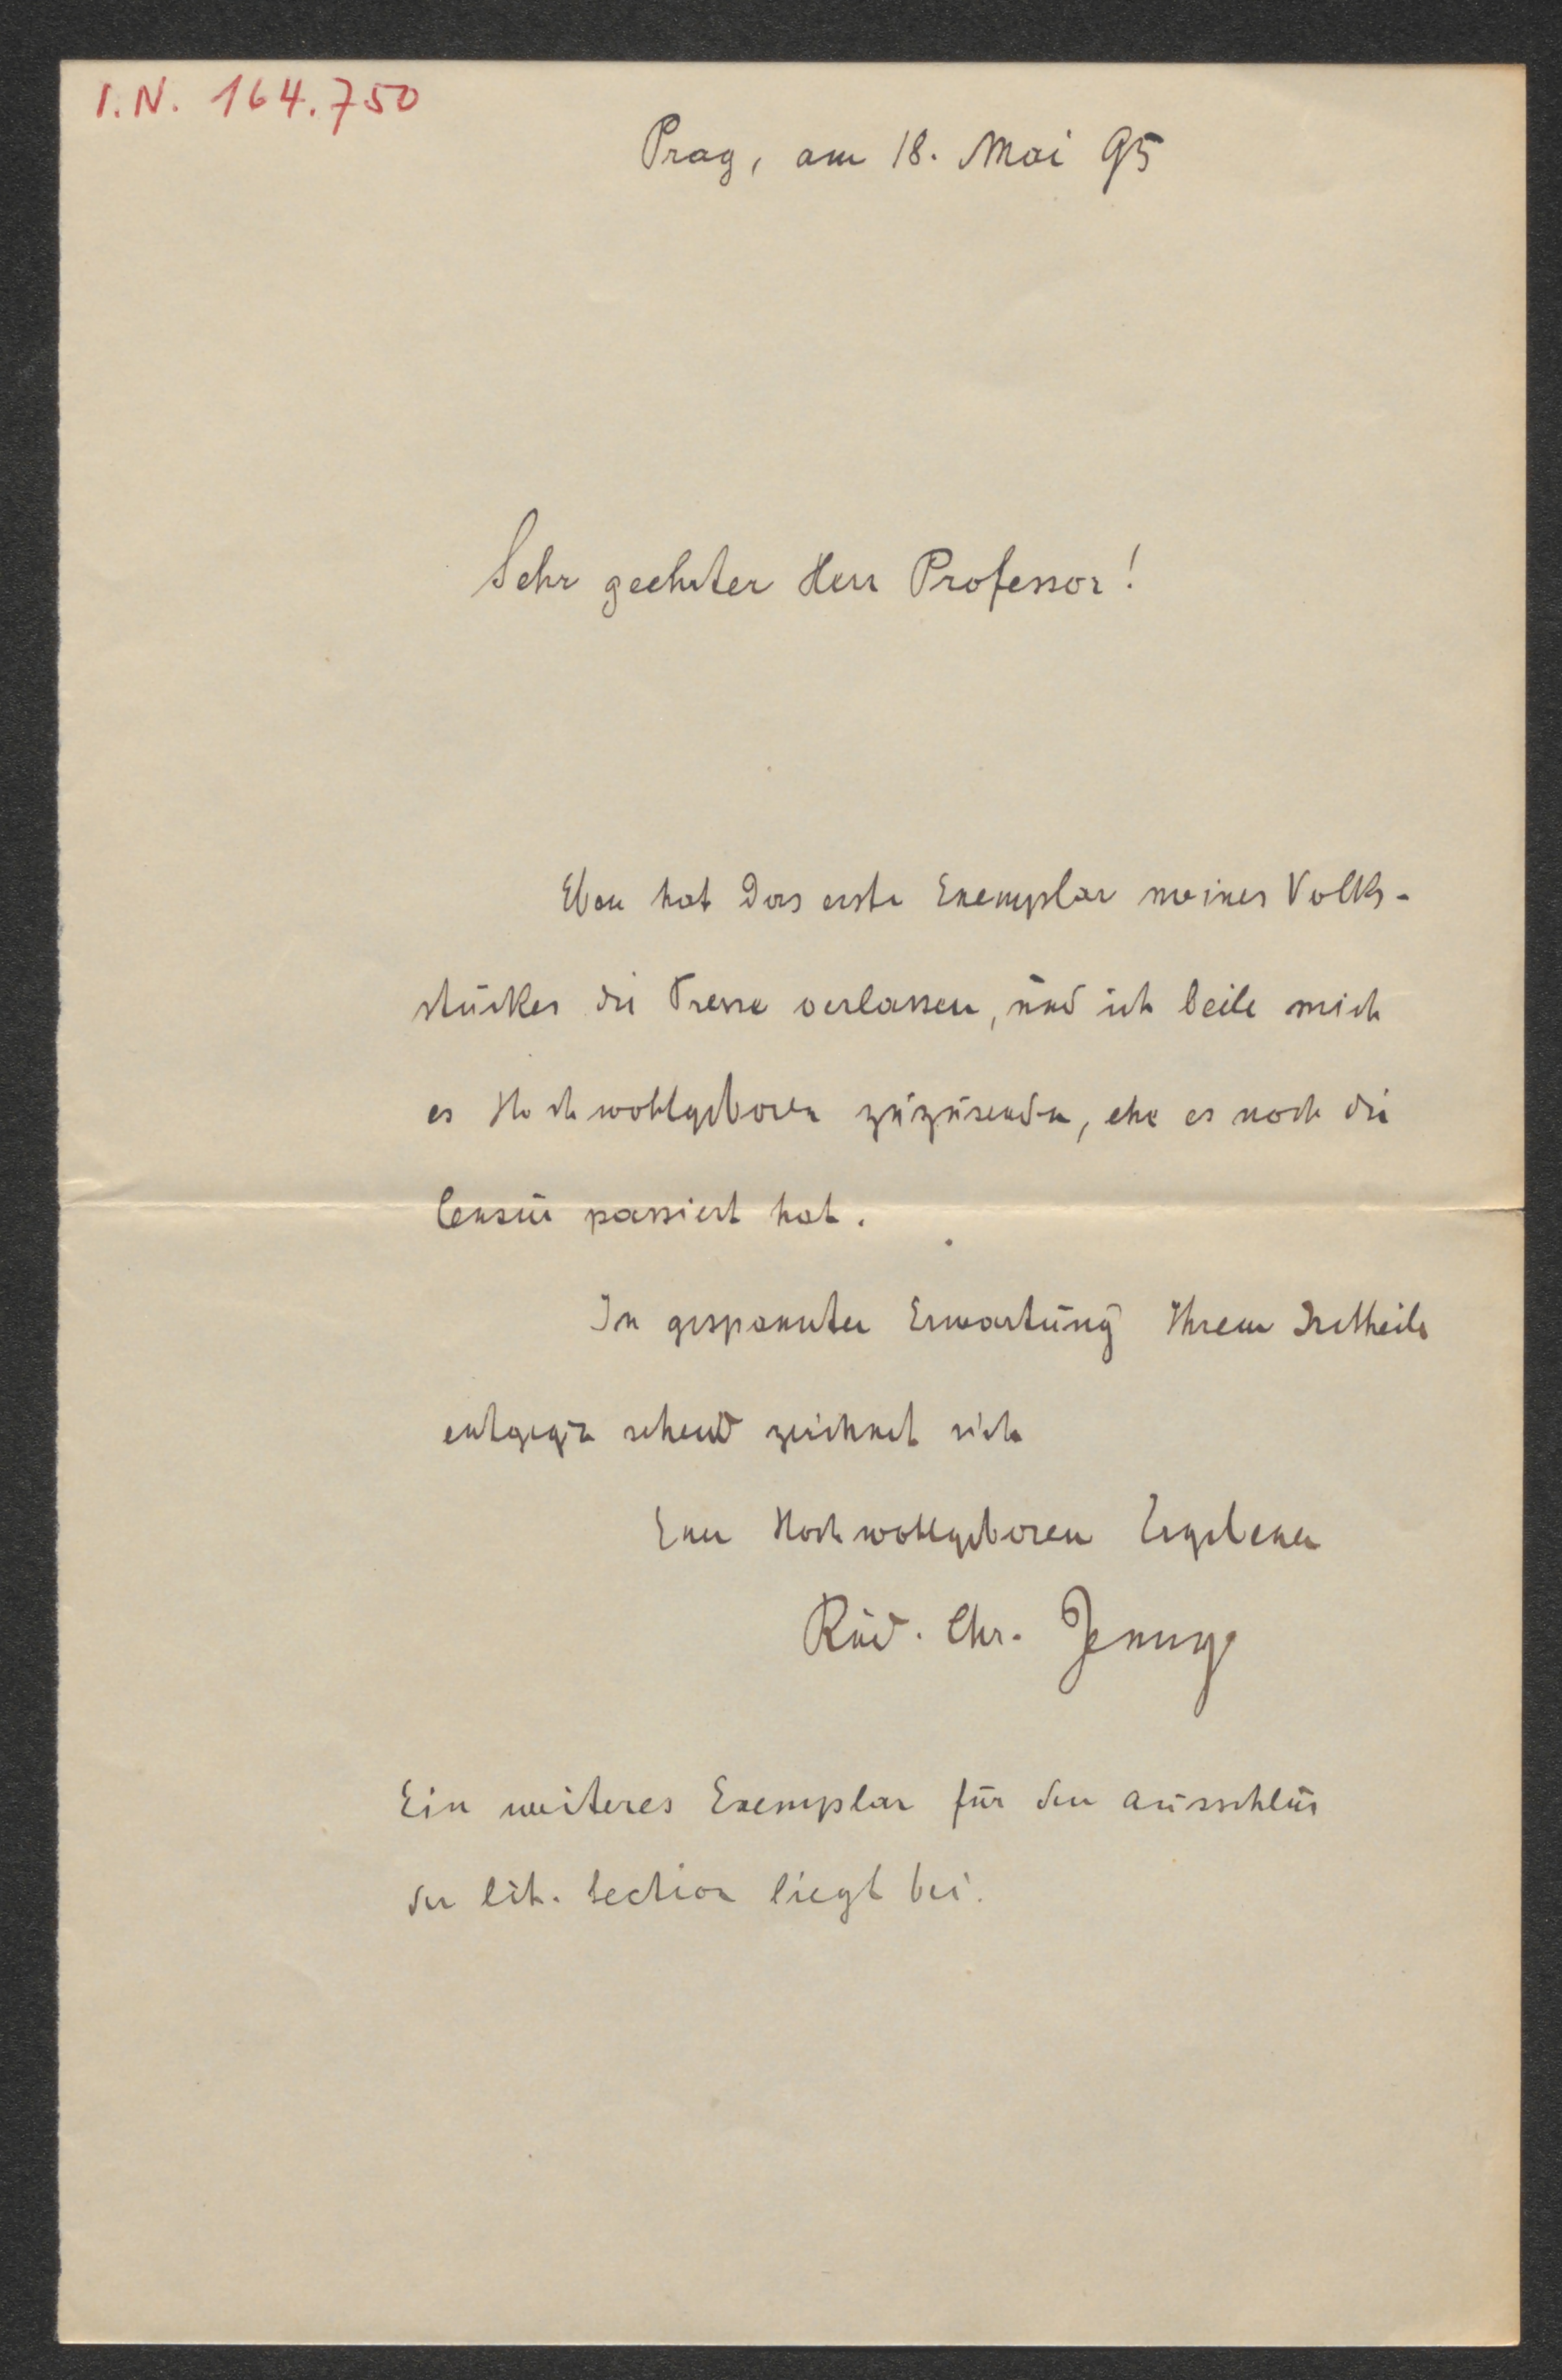 I.N. 164.750
Prag, am 18. Mai 95
Sehr geehrter Herr Professor!
Eben hat das erste Exemplar meines Volks-
stückes die Presse verlassen, und ich beile mich
es Hochwohlgeboren zuzusenden, ehe es noch die
Censur passiert hat.
In gespannter Erwartung Ihrem Urtheile
entgegen sehend zeichnet sich
Euer Hochwohlgeboren Ergebener
Rud. Chr. Jenny
Ein weiteres Exemplar für den Ausschuss
der lit. Section liegt bei.